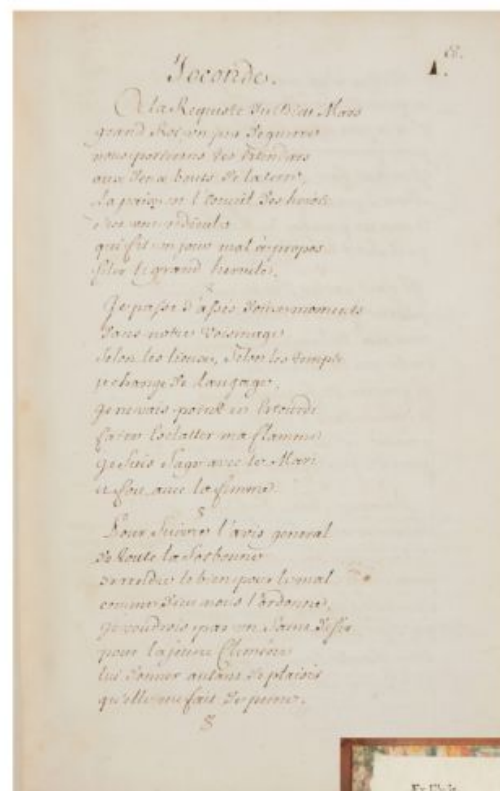 68.
1.
Joconde.
A la Requeste du Dieu Mars
grand Roi, on peu Sequerre
nous porterons Tes Etendars
aux deux bouts de la terre,
La paix est l'Ecueil des heros
c'est un ridicule
qui fit un jour mal à propos
filer le grand hercule.
Je passe d'assés doux moments
Dans notre Voisinage
Selon les lieux, Selon les temps
je change de Langage,
Je ne vais point en Etourdi
faire Esclatter ma flamme
Je Suis Sage avec le Mari
et fou avec la femme.
Pour Suivre l'avis general
de toute la Sorbonne
de rendre le bien pour le mal
comme Dieu nous l'ordonne,
Je voudrois par un Saint desir
pour la jeune Climene
lui donner autant de plaisir
qu'elle me fait de peine.
Ex Libris